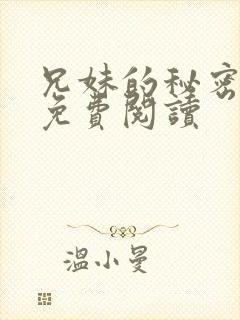 兄妹的秘密
免費閱讀
溫小曼